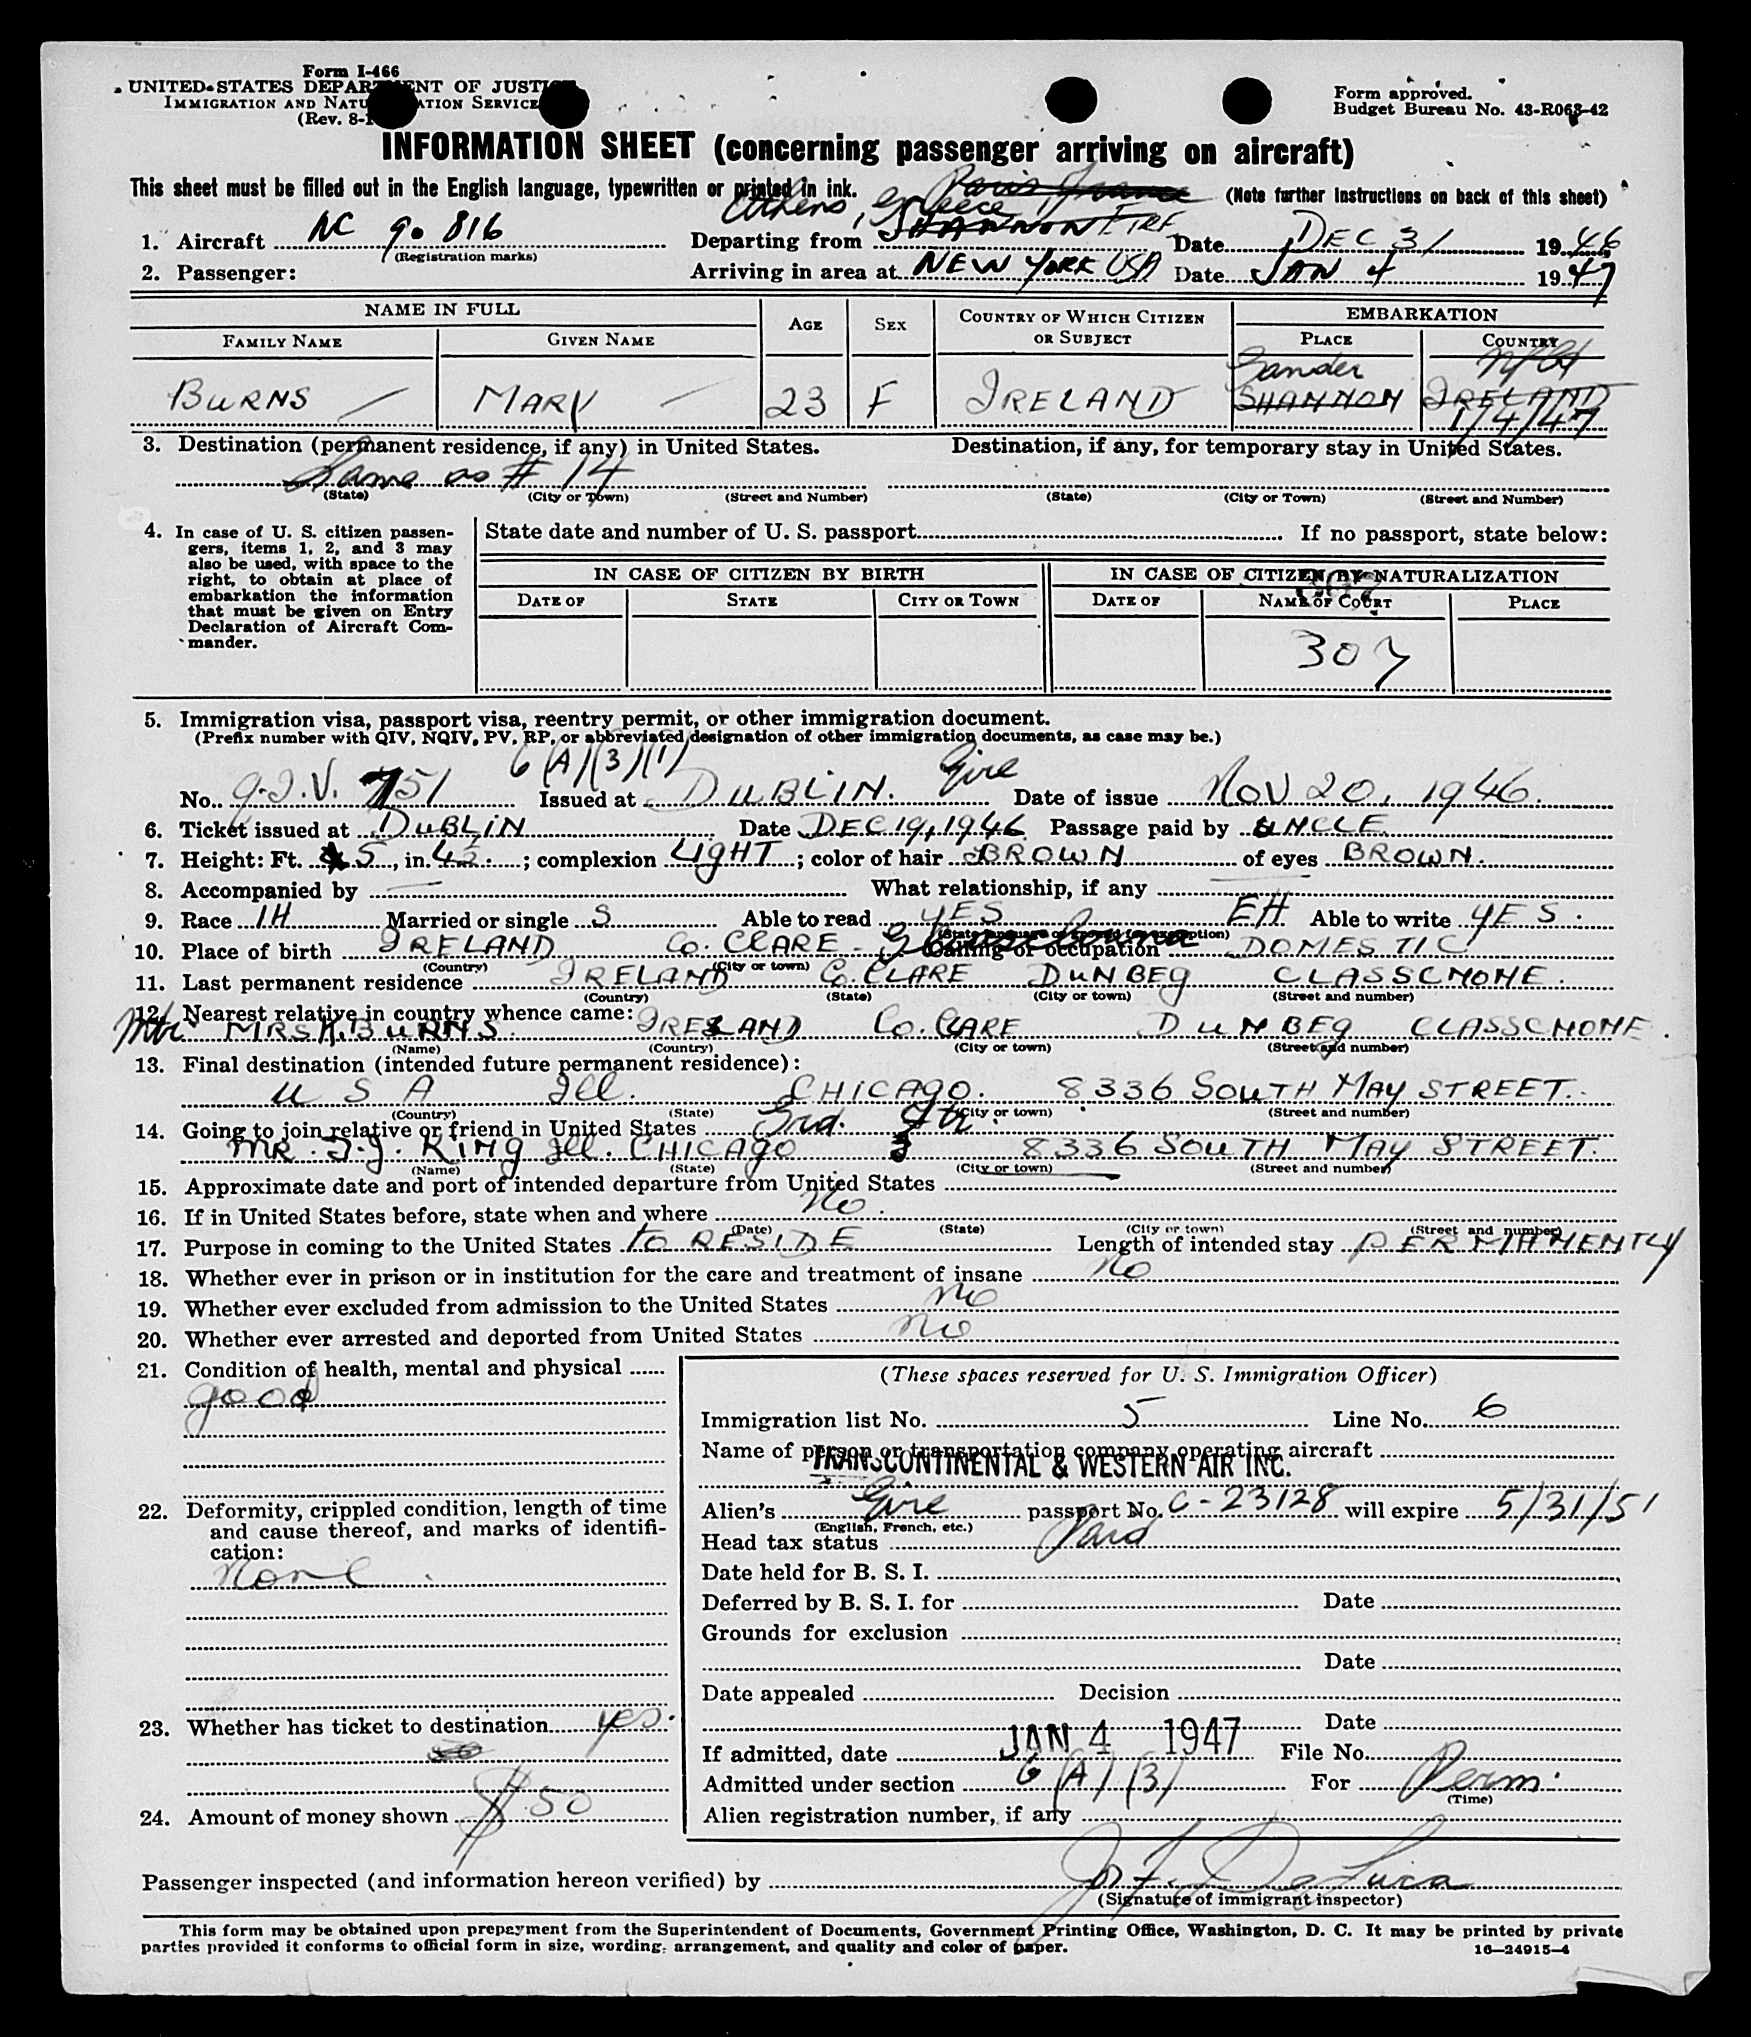 Form I-466
UNITED STATES DEPARTMENT OF JUSTICE
IMMIGRATION AND NATURALIZATION SERVICE
(Rev. 8-1
Form approved.
Budget Bureau No. 43-R063-42
INFORMATION SHEET (concerning passenger arriving on aircraft)
This sheet must be filled out in the English language, typewritten or printed in ink. Paris France (Note further instructions on back of this sheet)
Athens, Greece
1. Aircraft NC 90816 Departing from SHANNON EIRE Date DEC 31 1946
(Registration marks)
2. Passenger: Arriving in area at NEW YORK USA Date JAN 4 1947
NAME IN FULL AGE SEX COUNTRY OF WHICH CITIZEN OR SUBJECT EMBARKATION
FAMILY NAME GIVEN NAME PLACE COUNTRY
Gander Nfld
BURNS MARY 23 F IRELAND SHANNON IRELAND
1/4/47
3. Destination (permanent residence, if any) in United States. Destination, if any, for temporary stay in United States.
Same as # 14
(State) (City or Town) (Street and Number) (State) (City or Town) (Street and Number)
4. In case of U. S. citizen passengers, items 1, 2, and 3 may also be used, with space to the right, to obtain at place of embarkation the information that must be given on Entry Declaration of Aircraft Commander.
State date and number of U. S. passport If no passport, state below:
IN CASE OF CITIZEN BY BIRTH IN CASE OF CITIZEN BY NATURALIZATION
DATE OF STATE CITY OR TOWN DATE OF NAME OF COURT PLACE
307
5. Immigration visa, passport visa, reentry permit, or other immigration document.
(Prefix number with QIV, NQIV, PV, RP, or abbreviated designation of other immigration documents, as case may be.)
6 (A)(3)(1)
No. Q.I.V. 751 Issued at DUBLIN. Eire Date of issue NOV 20, 1946.
6. Ticket issued at DUBLIN Date DEC 19, 1946 Passage paid by UNCLE
7. Height: Ft. 5, in. 4½; complexion LIGHT; color of hair BROWN of eyes BROWN.
8. Accompanied by What relationship, if any
9. Race IH Married or single S Able to read YES EH Able to write YES.
(State language or ground for exemption)
10. Place of birth IRELAND CO. CLARE Calling or occupation DOMESTIC
(Country) (City or town)
11. Last permanent residence IRELAND CO. CLARE DUNBEG CLASSCNONE.
(Country) (State) (City or town) (Street and number)
12. Nearest relative in country whence came:
Mtr MRS K. BURNS. IRELAND CO. CLARE DUNBEG CLASSCNONE.
(Name) (Country) (City or town) (Street and number)
13. Final destination (intended future permanent residence):
U S A Ill. CHICAGO. 8336 SOUTH MAY STREET.
(Country) (State) (City or town) (Street and number)
14. Going to join relative or friend in United States
MR. T.J. KING Ill. CHICAGO 8336 SOUTH MAY STREET.
(Name) (State) (City or town) (Street and number)
15. Approximate date and port of intended departure from United States
16. If in United States before, state when and where No.
(Date) (State) (City or town) (Street and number)
17. Purpose in coming to the United States TO RESIDE Length of intended stay PERMANENTLY
18. Whether ever in prison or in institution for the care and treatment of insane No
19. Whether ever excluded from admission to the United States No
20. Whether ever arrested and deported from United States No
21. Condition of health, mental and physical
good
22. Deformity, crippled condition, length of time and cause thereof, and marks of identification:
None
23. Whether has ticket to destination yes.
24. Amount of money shown $50
(These spaces reserved for U. S. Immigration Officer)
Immigration list No. 5 Line No. 6
Name of person or transportation company operating aircraft
TRANSCONTINENTAL & WESTERN AIR INC.
Alien's Eire passport No. C-23128 will expire 5/31/51
(English, French, etc.)
Head tax status Paid
Date held for B. S. I.
Deferred by B. S. I. for Date
Grounds for exclusion
Date
Date appealed Decision
Date
If admitted, date JAN 4 1947 File No.
Admitted under section 6 (A) (3) For Perm.
(Time)
Alien registration number, if any
Passenger inspected (and information hereon verified) by
(Signature of immigrant inspector)
This form may be obtained upon prepayment from the Superintendent of Documents, Government Printing Office, Washington, D. C. It may be printed by private
parties provided it conforms to official form in size, wording, arrangement, and quality and color of paper. 16—24915-4